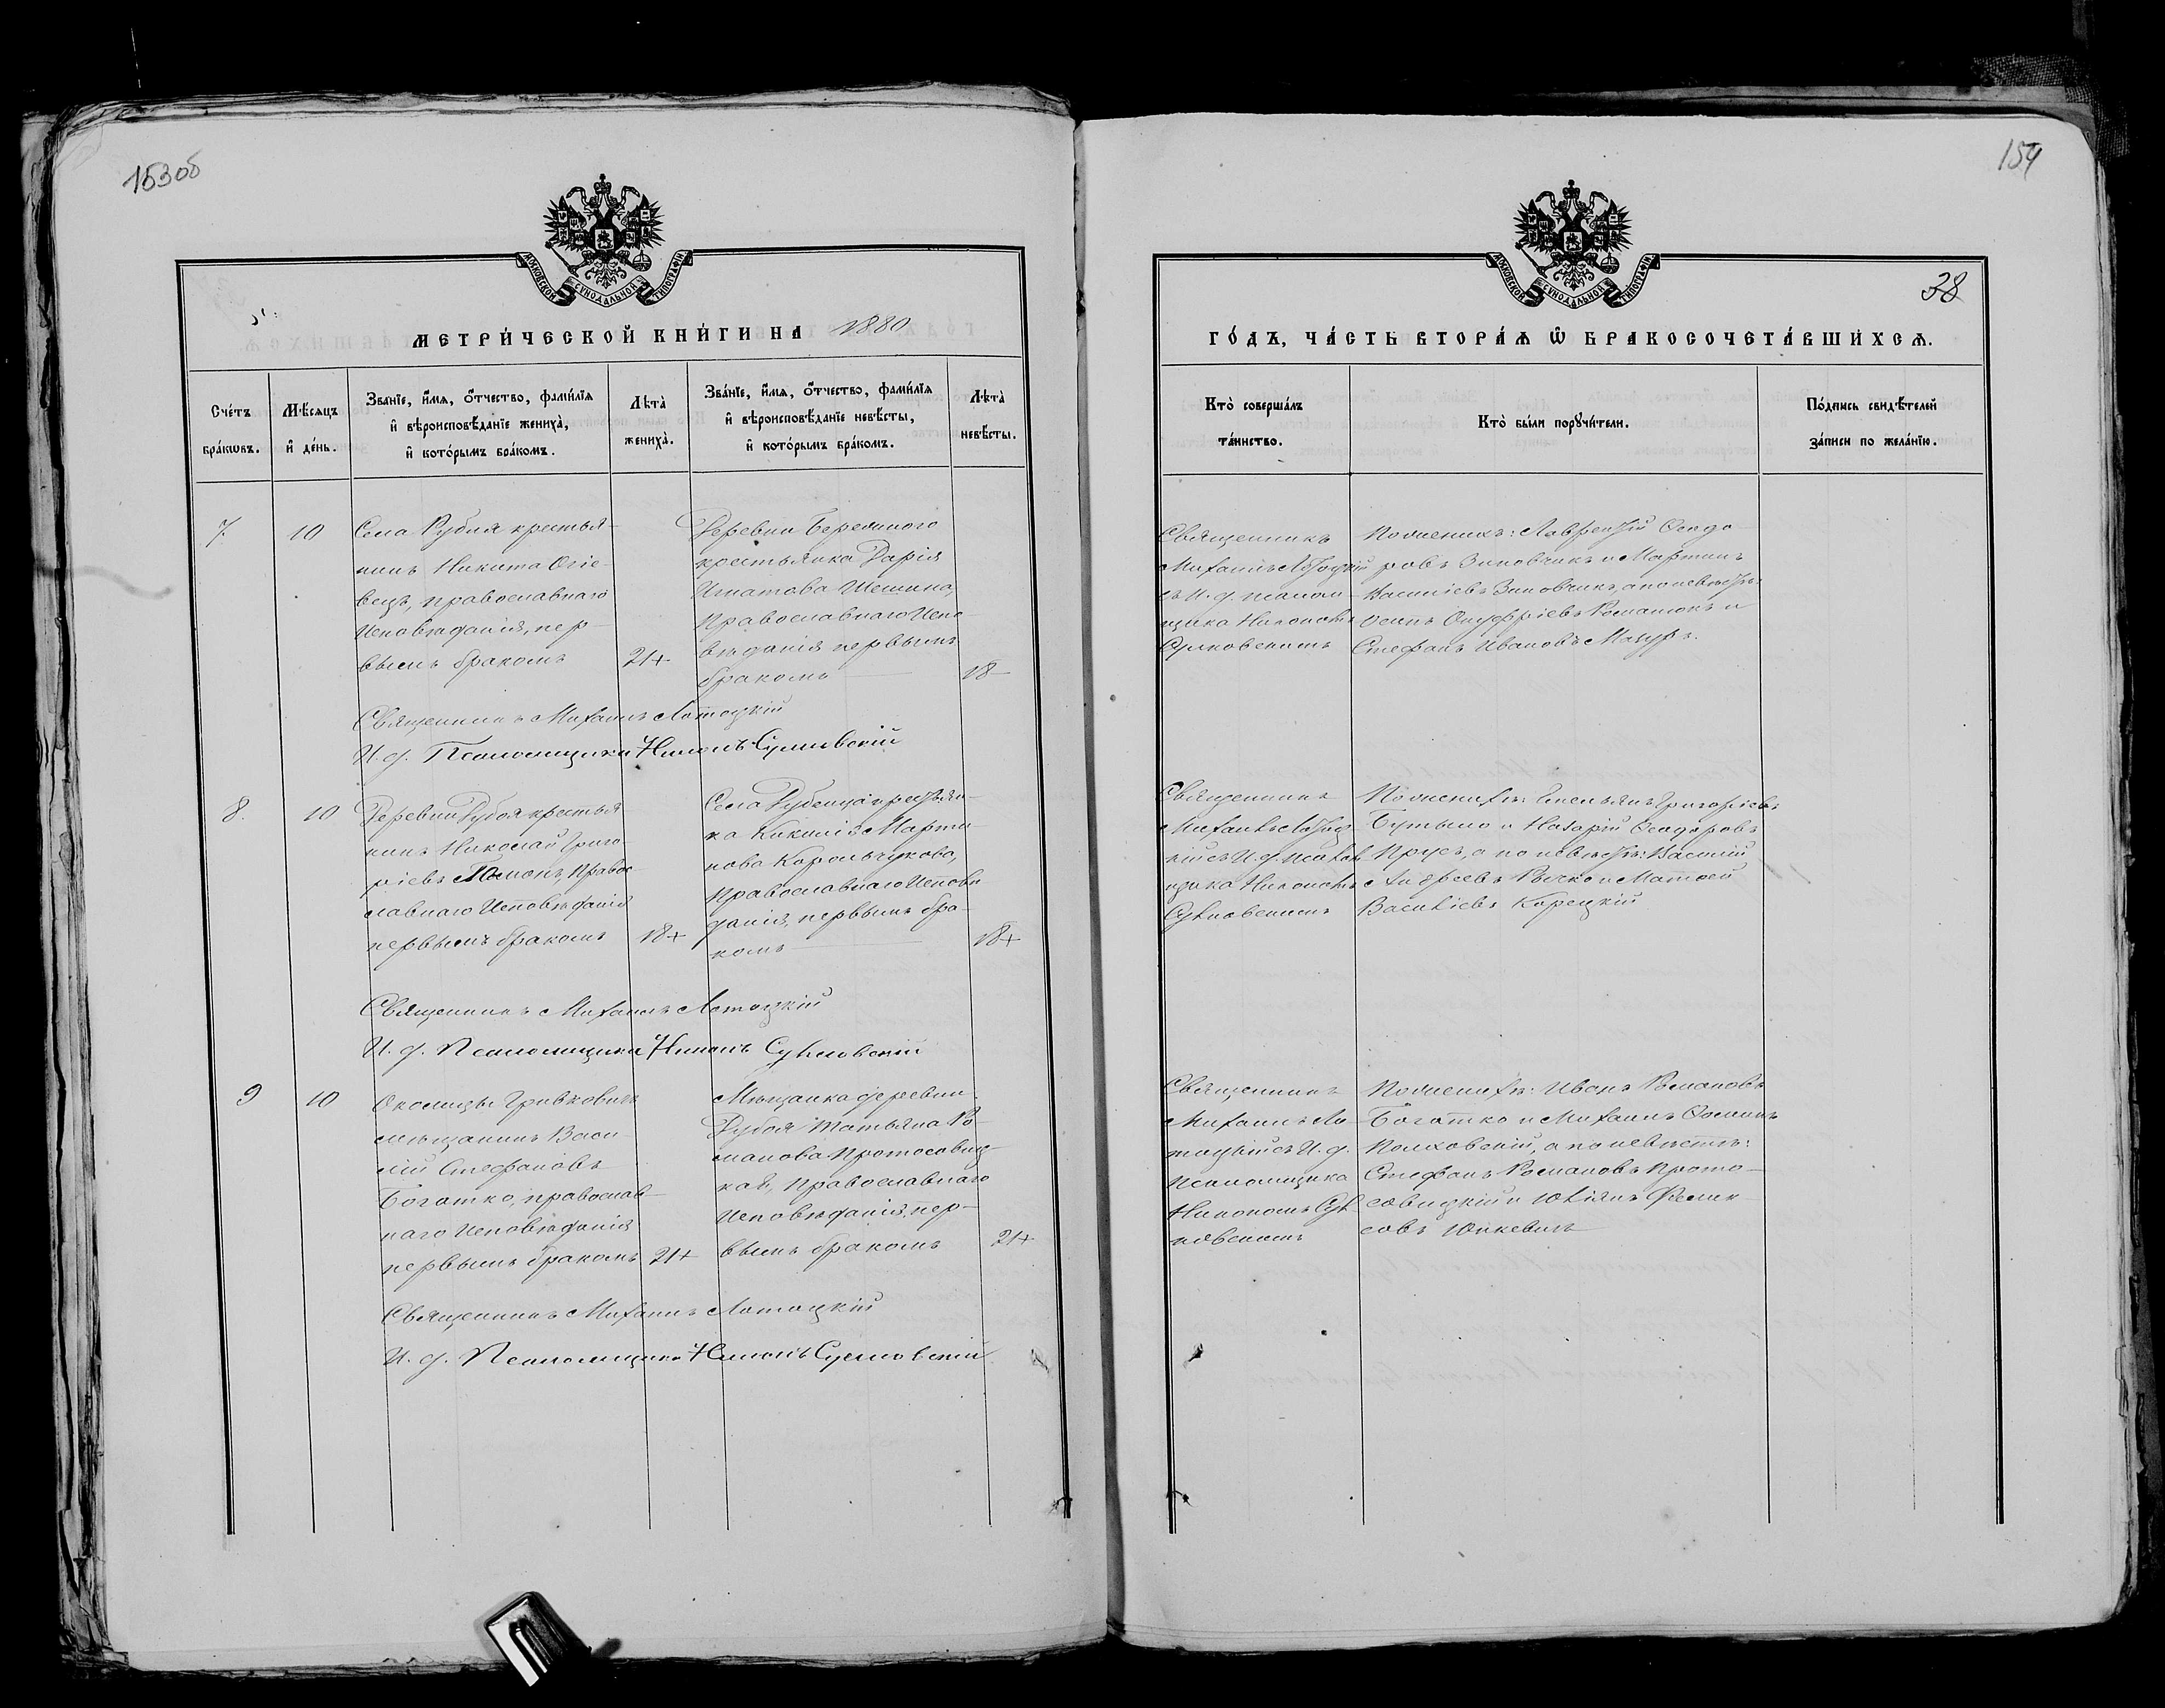 153об
МОСКОВСКОЙ СѴНОДАЛЬНОЙ ТИПОГРАФІИ
МЕТРИ́ЧЕСКОЙ КНИ́ГИ НА 1880
Сче́тъ бра́кѡвъ.
Мѣ́сяцъ и҆ де́нь.
Зва́нїе, и҆́мѧ, ѻ҆́тчество, фами́лїѧ
и҆ вѣроисповѣ́данїе жениха̀,
и҆ кото́рымъ бра́комъ.
Лѣта̀ жениха̀.
Зва́нїе, и҆́мѧ, ѻ҆́тчество, фами́лїѧ
и҆ вѣроисповѣ́данїе невѣ́сты,
и҆ кото́рымъ бра́комъ.
Лѣта̀ невѣ́сты.
7.
10
Села Рубля крестья-
нинъ Никита Огіе-
вецъ, православнаго
Исповѣданія, пер-
вымъ бракомъ
21+
Деревни Бережного
крестьянка Дарія
Игнатова
Православнаго Испо
вѣданія первымъ
бракомъ
18
Священникъ Михаилъ Лотоцкій
И. д. Псаломщика
8.
10
Деревни Дубоя крестья
нинъ Николай Григо-
ріевъ правос
лавнаго Исповѣданія
первымъ бракомъ
18+
Села
ка Марти
нова Корольчукова,
Православнаго Исповѣ
данія, первымъ бра-
комъ
18+
Священникъ Михаилъ Лотоцкій
И. д. Псаломщика
9
10
Околицы
мѣщанинъ Васи-
лій Стефановъ
Богатко, православ
наго Исповѣданія
первымъ бракомъ
21+
Мѣщанка деревни
Дубоя Татьяна Ро-
манова Протосовиц-
кая, Православнаго
Исповѣданія, пер-
вымъ бракомъ
21+
Священникъ Михаилъ Лотоцкій
И. д. Псаломщика
154
МОСКОВСКОЙ СѴНОДАЛЬНОЙ ТИПОГРАФІИ
38
ГО́ДЪ, ЧА́СТЬ ВТОРА́Ѧ Ѽ БРАКОСОЧЕТА́ВШИХСѦ.
Кто̀ соверша́лъ та́инство.
Кто̀ бы́ли порꙋчи́тели.
По́дпись свидѣ́телей
за́писи по жела́нїю.
Священникъ
Михаилъ Лотоцкій
съ И. д. псалом
щика
По женихѣ: Лаврентій Ѳеодо
ровъ Зиновчикъ и Мартинъ
Василіевъ Зиновчикъ, а по невѣстѣ:
Осипъ Онуфріевъ Романюкъ и
Стефанъ Ивановъ Мазуръ.
Священникъ
Михаилъ Лотоц
кій съ И. д. псалом
щика
По женихѣ: Емельянъ Григоріевъ
и Назарій Ѳеодоровъ
а по невѣстѣ: Василій
Андреевъ и Матѳей
Василіевъ Корецкій
Священникъ
Михаилъ Ло
тоцкій съ И. д.
Псаломщика
По женихѣ: Иванъ Романовъ
Богатко и Михаилъ Ѳоминъ
Полховскій, а по невѣстѣ:
Стефанъ Романовъ Прото-
совицкій и Юліянъ Фелик
совъ Юнкевичъ